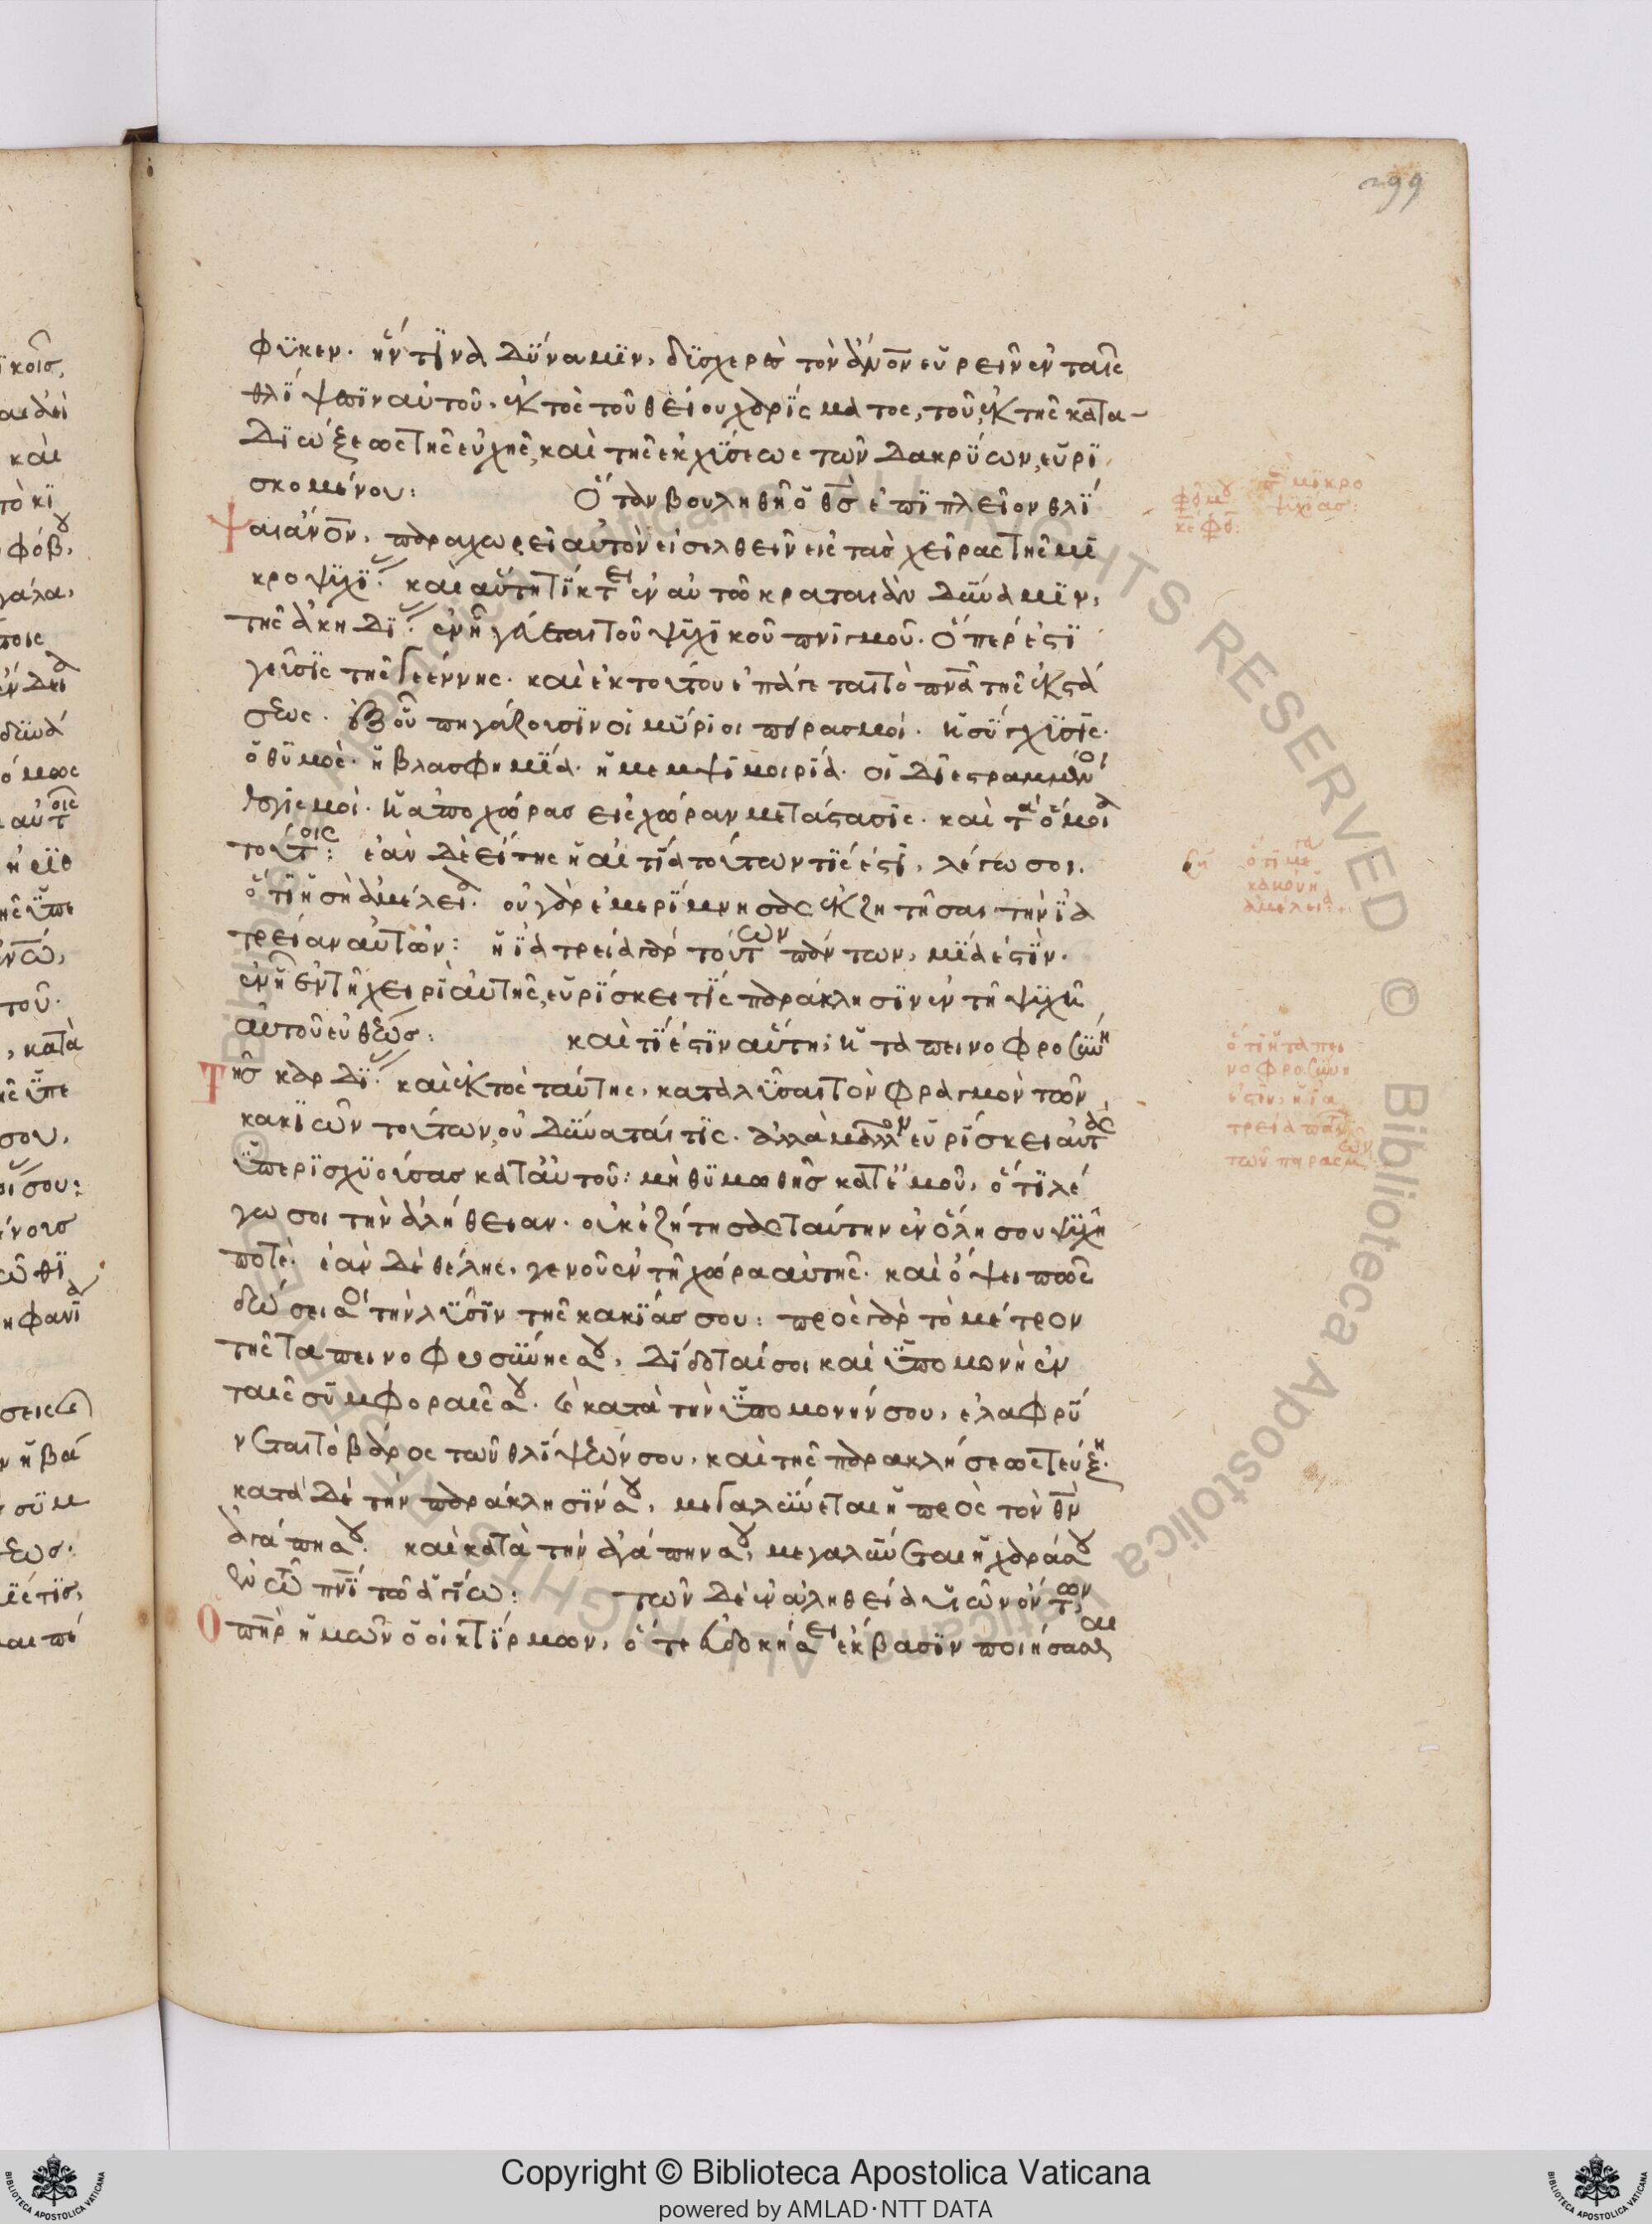 299
φϋκεν· ἥντϊνα δΰναμϊν, δϋσχερὲς τὸν ἄνον εὑρεῖν ἐν ταῖς
θλΐψεϊν αὐτοῦ, ἐκτὸς τοῦ θείου χαρΐσματος, τοῦ ἐκ τῆς κατα-
διώξεως τῆς εὐχῆς, καὶ τῆς ἐκχΰσεως τῶν δακρΰων, εὑρϊ
σκομένου: Ὅταν βουληθῆ ὁ θς ἐπϊπλεῖον θλΐ
ψαι ἄνον, παραχωρεῖ αὐτὸν εἰσελθεῖν εἰς τὰς χεῖρας τῆς μϊ
κροψϋχΐ καὶ αὕτη τΐκτει ἐν αὐτῶ κραταιὰν δΰναμϊν,
τῆς ἀκηδΐ ἐν ἧ γεύεται τοῦ ψϋχϊκοῦ πνϊγμοῦ. ὅπερ ἐστϊ
γεῦσϊς τῆς γεέννης. καὶ ἐκ τούτου ἐπάγεται τὸ πνα τῆς ἐκστά
σεως. ἐξ οὗ πηγάζουσϊν οἱ μΰριοι πειρασμοί. ἡ σΰγχϋσϊς.
ὁ θϋμός. ἡ βλασφημΐα. ἡ μεμψϊμοιρΐα. οἱ διεστραμμένοι
λογισμοί. ἡ ἀπὸ χώρας εἰς χώραν μετάστασις. καὶ τὰ ὅμοια
τούτοις: ἐὰν δὲ εἴπης ἡ αἰτΐα τούτων τΐς ἐστϊ, λέγω σοι.
ὅτϊ ἡ σὴ ἀμέλεια. οὐ γὰρ ἐμερΐμνησας ἐκζητῆσαι τὴν ἰα
τρείαν αὐτῶν: ἡ ἰατρεία γὰρ τούτων πάντων, μΐα ἐστϊν.
ἐν ἧ ἐν τῆ χειρὶ αὐτῆς, εὑρΐσκει τϊς παράκλησϊν ἐν τῆ ψϋχῆ
αὐτοῦ εὐθέως: καὶ τΐ ἐστϊν αὕτη; ἡ ταπεινοφροσΰνη
τῆς καρδΐ καὶ ἐκτὸς ταύτης, καταλῦσαι τὸν φραγμὸν τῶν
κακϊῶν τούτων, οὐ δΰναταί τϊς. ἀλλὰ μᾶλλον εὑρΐσκει αὐτὰς
ὑπερϊσχϋούσας κατ' αὐτοῦ: μὴ θϋμωθῆς κατ' ἐμοῦ, ὅτϊ λέ
γω σοι τὴν ἀλήθειαν. οὐκ ἐζήτησας ταύτην ἐν ὅλη σου ψϋχῆ
ποτέ. ἐὰν δὲ θέλης, γενοῦ ἐν τῆ χώρα αὐτῆς. καὶ ὄψει πῶς
δώσει σοι τὴν λΰσϊν τῆς κακΐας σου: πρὸς γὰρ τὸ μέτρον
τῆς ταπεινοφροσΰνης σου, δΐδοταί σοι καὶ ὑπομονὴ ἐν
ταῖς σϋμφοραῖς σου. καὶ κατὰ τὴν ὑπομονήν σου, ἐλαφρΰ
νεται τὸ βάρος τῶν θλΐψεών σου, καὶ τῆς παρακλήσεως τεύξη.
κατὰ δὲ τὴν παράκλησΐν σου, μεγαλΰνεται ἡ πρὸς τὸν θν
ἀγάπη σου. καὶ κατὰ τὴν ἀγάπην σου, μεγαλΰνεται ἡ χαρά σου
ἐν τῶ πνϊ τῶ ἁγΐω: τῶν δὲ ἐν ἀληθεία ϋἱῶν ὄντων
ὁ πηρ ἡμῶν ὁ οἰκτΐρμων, ὅτε εὐδοκήσει ἔκβασϊν ποιήσασθαι
μϊκρο
ψϋχΐας:
ὅτι
κακοῦ ἡ
ἀμέλεια:
ὅτϊ ἡ ταπει
νοφροσΰνη
ἐστϊν, ἡ ἰα
τρεία πάν
των τῶν πηρασμ
Copyright © Biblioteca Apostolica Vaticana
powered by AMLAD·NTT DATA